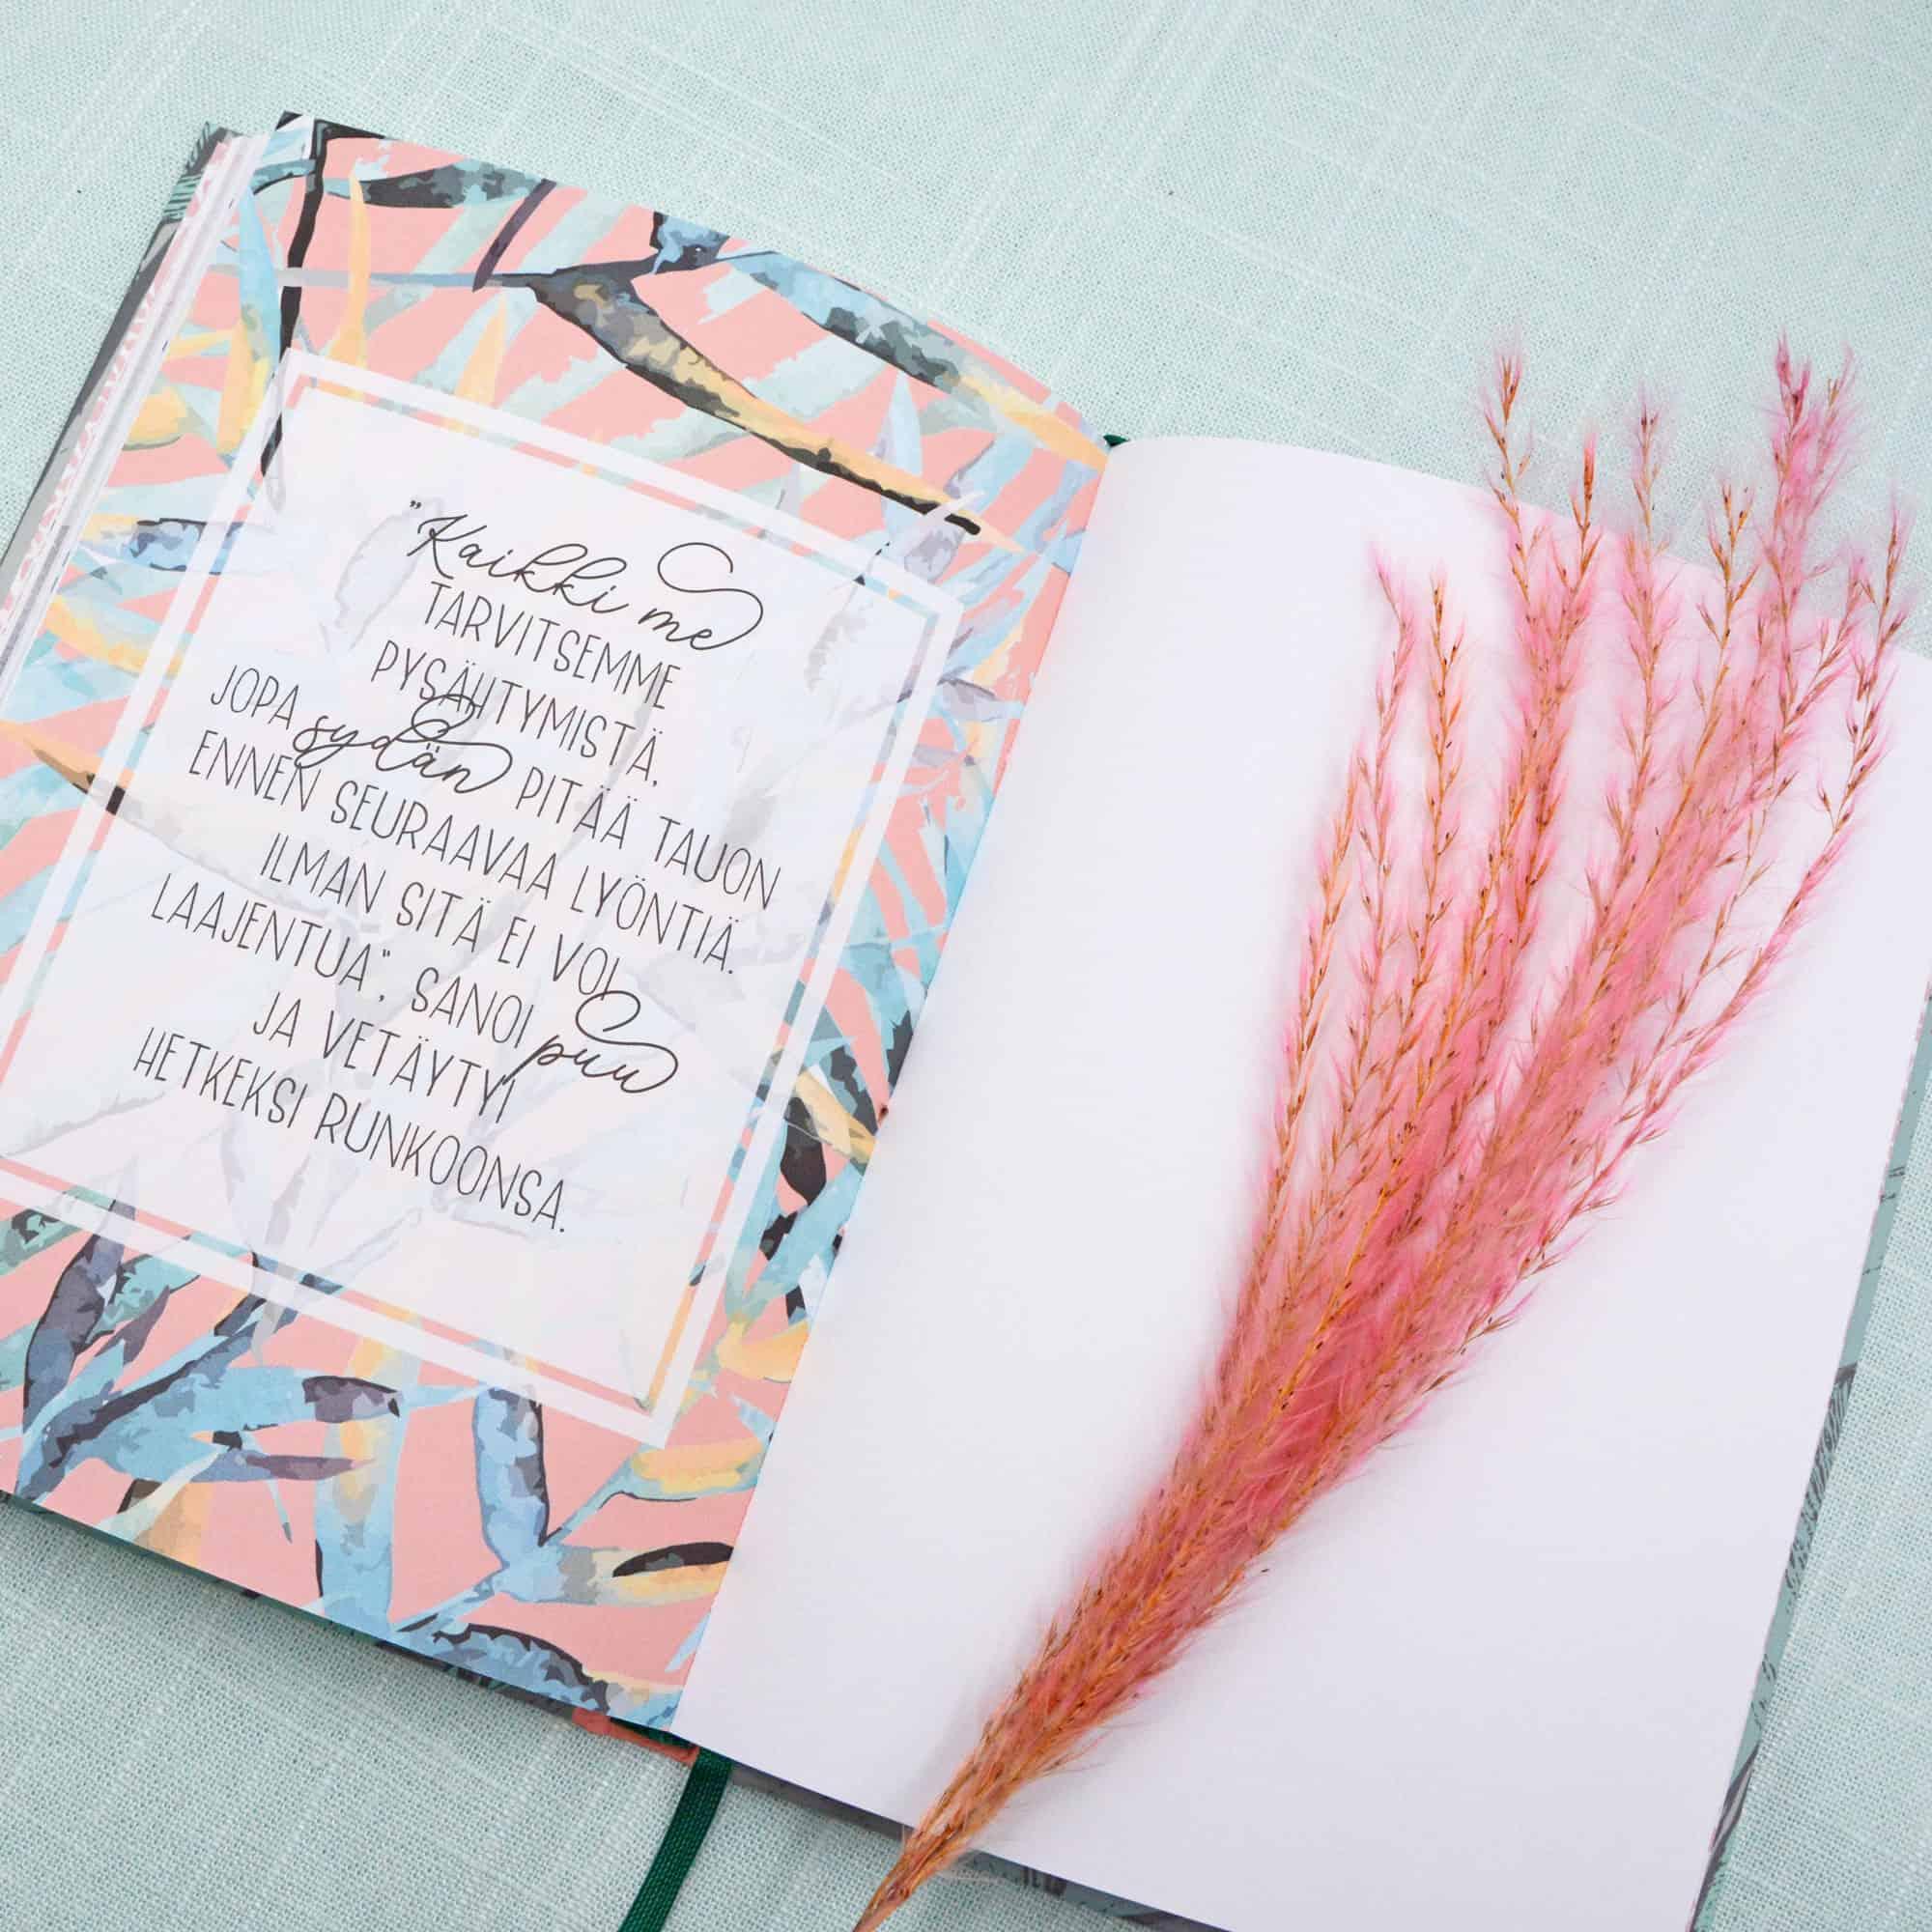 "Kaikki me
TARVITSEMME
PYSÄHTYMISTÄ,
JOPA sydän PITÄÄ TAUON
ENNEN SEURAAVAA LYÖNTIÄ.
ILMAN SITÄ EI VOI
LAAJENTUA", SANOI puu
JA VETÄYTYI
HETKEKSI RUNKOONSA.